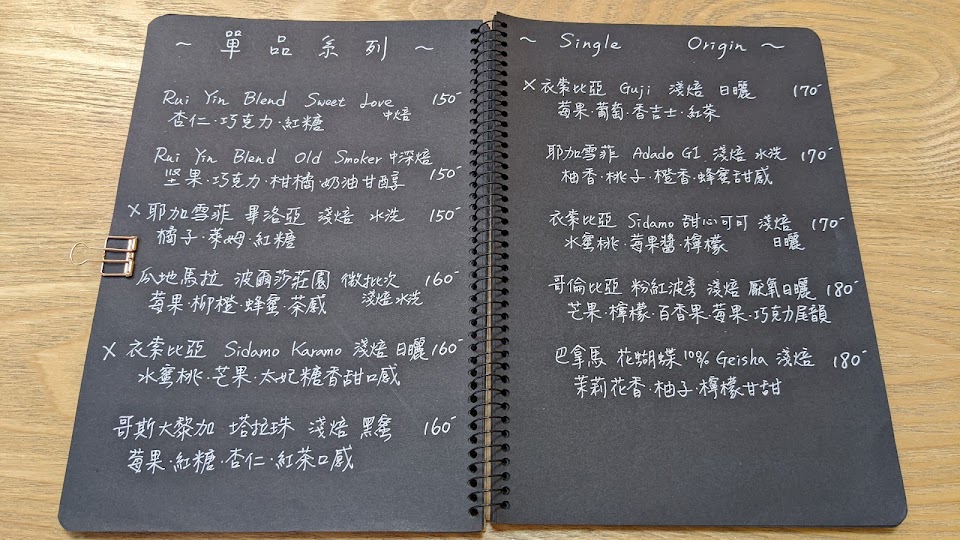 ~ 單品系列 ~
Rui Yin Blend Sweet Love 150
中焙
杏仁·巧克力·紅糖
Rui Yin Blend Old Smoker 中深焙
坚果·巧克力·柑橘·奶油甘醇 150
x 耶加雪菲 畢洛亞 淺焙 水洗 150
橘子·萊姆·紅糖
瓜地馬拉 波爾莎莊園 微批次 160
莓果·柳橙·蜂蜜·茶感 淺焙 水洗
x 衣索比亞 Sidamo Karamo 淺焙 日曬 160
水蜜桃·芒果·太妃糖香甜口感
哥斯大黎加 塔拉珠 淺焙 黑蜜 160
莓果·紅糖·杏仁·紅茶口感
~ Single Origin ~
x 衣索比亞 Guji 淺焙 日曬 170
莓果·葡萄·香吉士·紅茶
耶加雪菲 Adado G1 淺焙 水洗 170
柚香·桃子·橙香·蜂蜜甜感
衣索比亞 Sidamo 甜心可可 淺焙 170
水蜜桃·莓果醬·檸檬 日曬
哥倫比亞 粉紅波旁 淺焙 厭氧日曬 180
芒果·檸檬·百香果·莓果·巧克力尾韻
巴拿馬 花蝴蝶 10% Geisha 淺焙 180
茉莉花香·柚子·檸檬甘甜